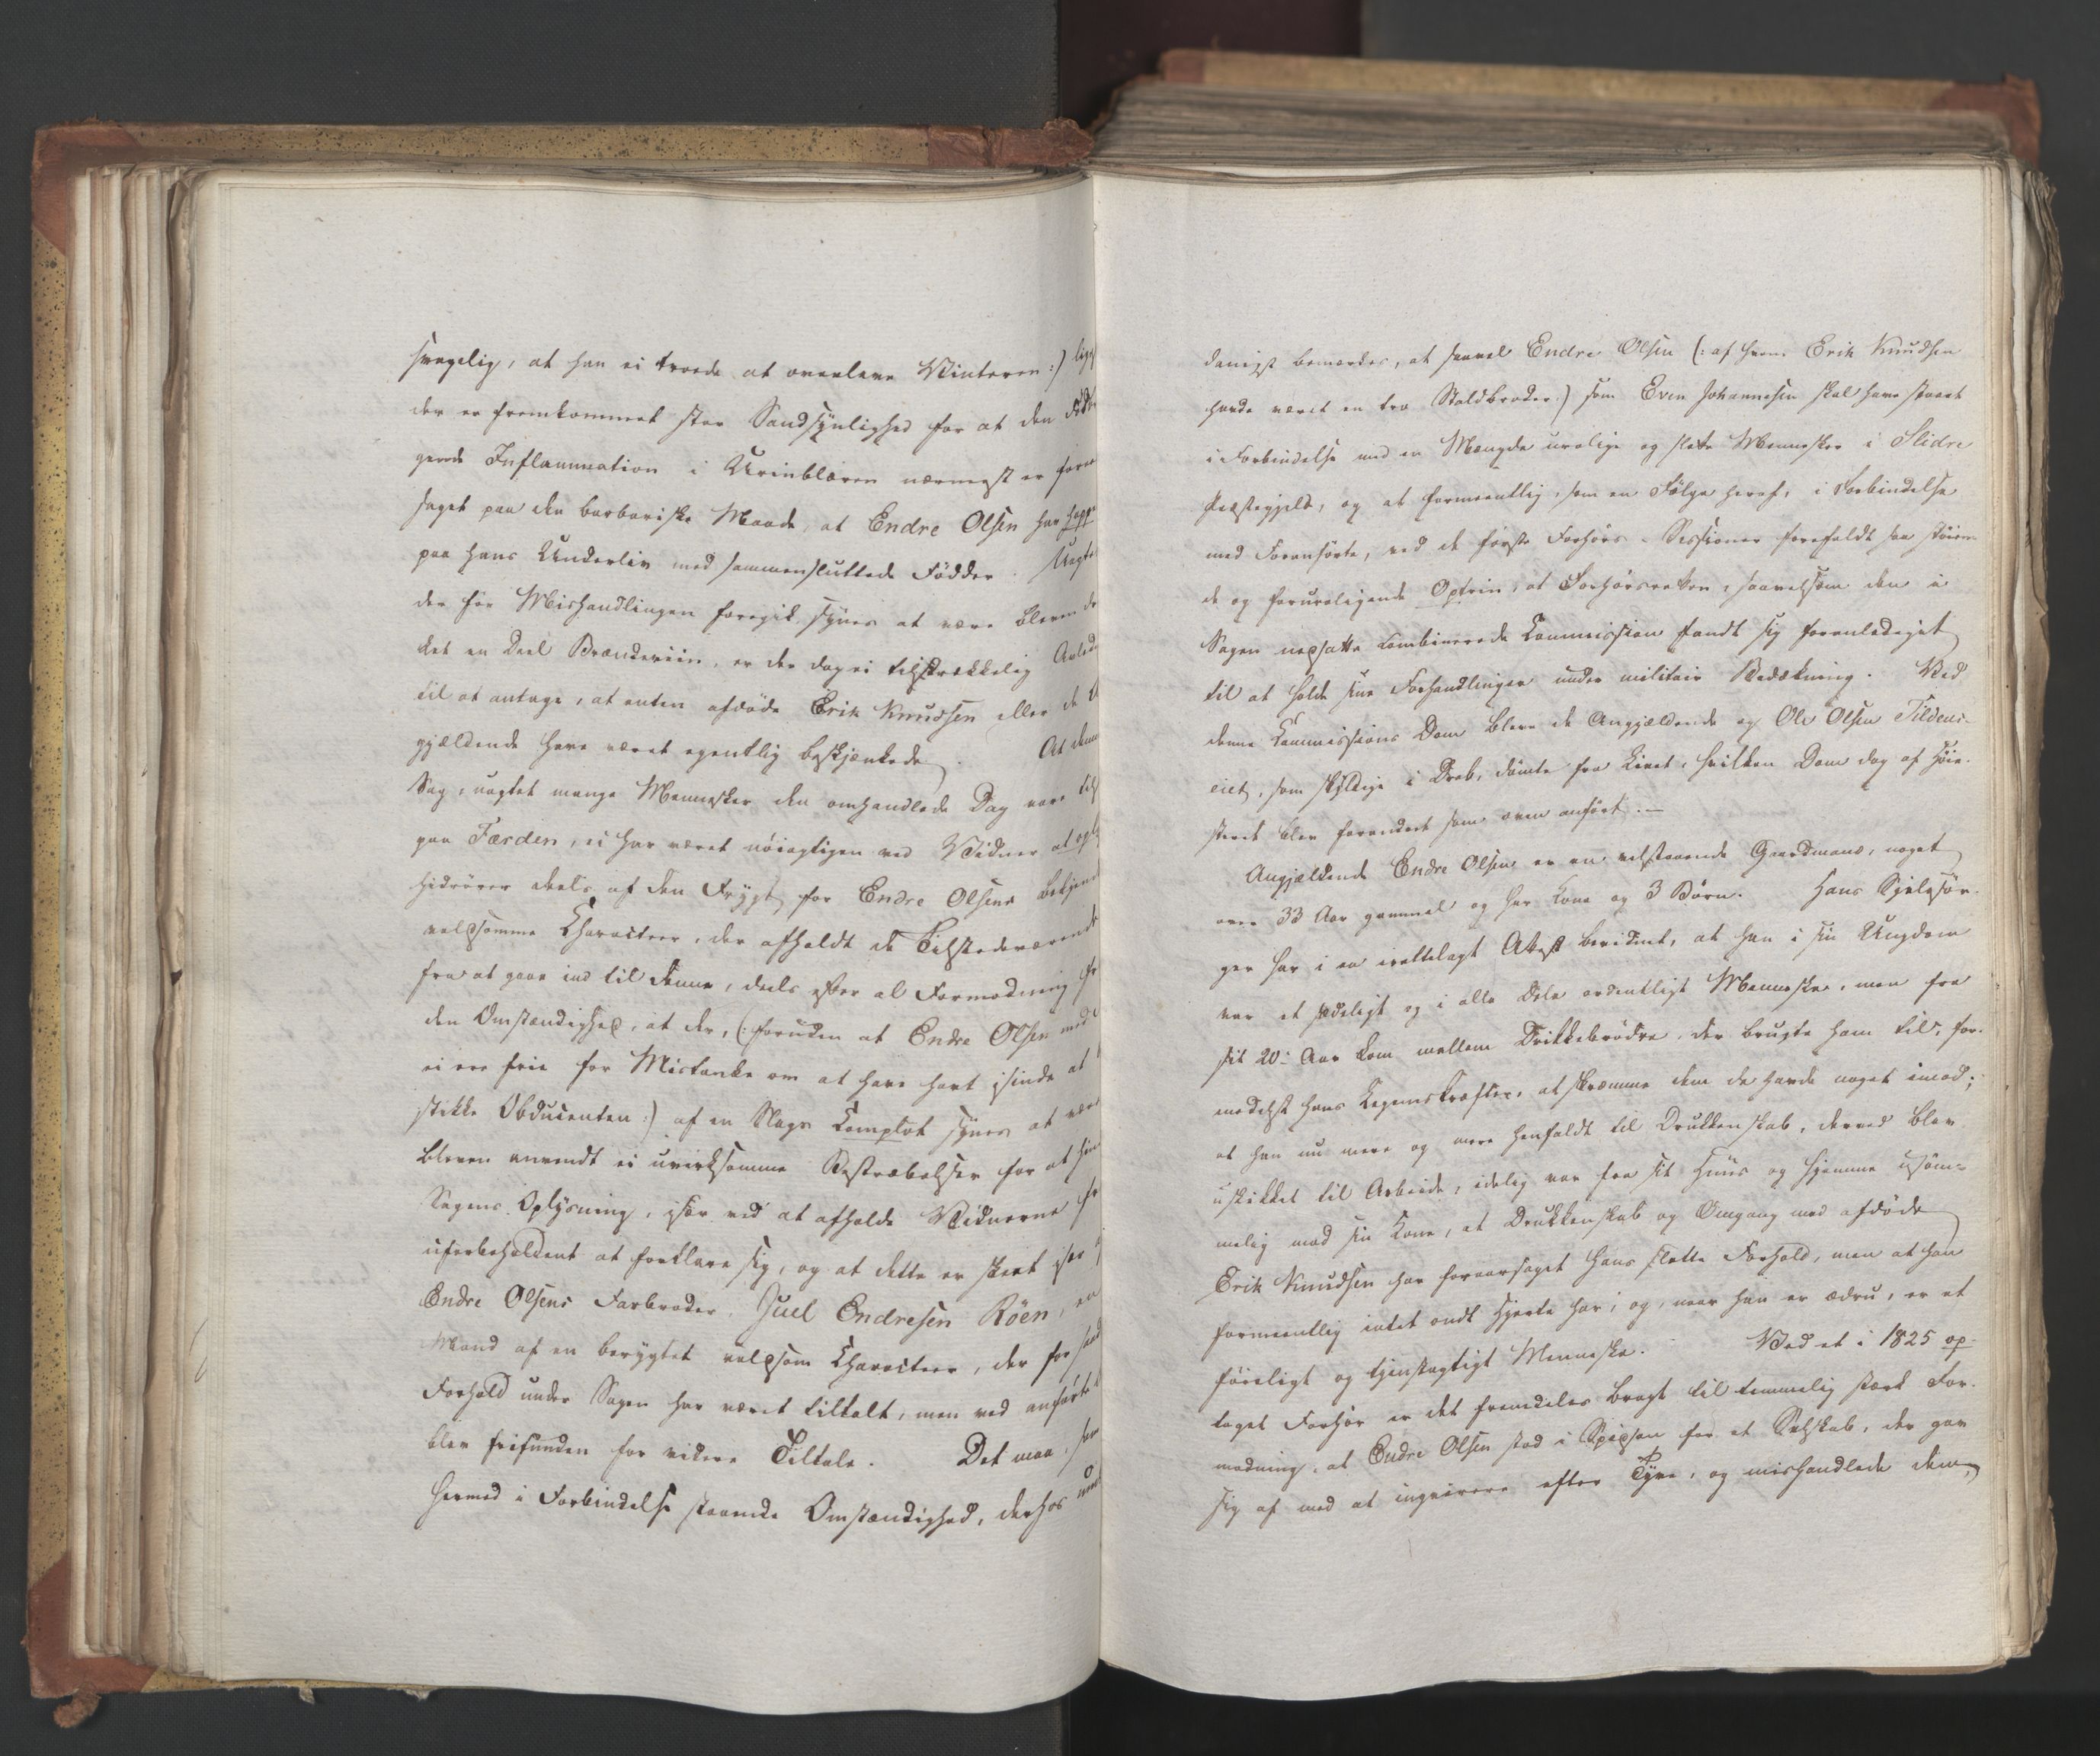 svagelig, at han ei troede at overleve Vinteren:)
der er fremkommet stor Sandsynlighed for at den
gende Inflammation i Urinblæren nærmest er
saget paa den barbariske Maade, at Endre Olsen har
paa hans Underliv med sammensluttede Fødder.
der før Mishandlingen foregik, synes at være bleven
ket en Deel Brændeviin, er der dog ei tilstrækkelig
til at antage, at enten afdøde Erik Knudsen eller de
gjældende have været egentlig beskjænkede. At denne
Sag, uagtet mange Mennesker den omhandlede Dag vare
paa Færden, ei har været nøiagtigen ved Vidner at
hidrører deels af den Frygt for Endre Olsens
voldsomme Characteer, der afholdt de Tilstedeværende
fra at gaae ind til denne, deels efter al Formodning
den Omstændighed, at der, (:foruden at Endre Olsen
ei ere frie for Mistanke om at have havt isinde at
stikke Obducenten:) af en Slags Complot synes at være
bleven anvendt ei uvirksomme Bestræbelser for at
Sagens Oplysning, især ved at afholde Vidnerne
uforbeholdent at forklare sig, og at dette er skeet især
Endre Olsens Farbroder, Juel Endresen Röen, en
Mand af en berygtet voldsom Characteer, der for
Forhold under Sagen har været tiltalt, men ved anførte
blev frifunden for videre Tiltale. Det maa, som
hermed i Forbindelse staaende Omstændighed, derhos
danigst bemærkes, at saavel Endre Olsen (:af hvem Erik Knudsen
havde været en tro Staldbroder:) som Even Johannesen skal have staaet
i Forbindelse med en Mængde urolige og slette Mennesker i Slidre
Præstegjeld, og at formeentlig, som en Følge heraf, i Forbindelse
med Foranførte, ved de første Forhørs-Sessioner forefaldt saa støien-
de og foruroligende Optrin, at Forhørsretten, saavelsom den i
Sagen nedsatte combinerede Commission fandt sig foranlediget
til at holde sine Forhandlinger under militair Bedækning. Ved
denne Commissions Dom bleve de Angjældende og Ole Olsen Tildens-
eiet, som skyldige i Drab, dømte fra Livet, hvilken Dom dog af Høie-
steret blev forandret som oven anført.—
Angjældende Endre Olsen er en velstaaende Gaardmand, noget
over 33 Aar gammel og har Kone og 3 Børn. Hans Sjelesør-
ger har i en irettelagt Attest bevidnet, at han i sin Ungdom
var et sædeligt og i alle Dele ordentligt Menneske, men fra
sit 20de Aar kom mellem Drikkebrødre, der brugte ham til, for-
medelst hans Legemskræfter, at skræmme dem de havde noget imod;
at han nu mere og mere henfaldt til Drukkenskab, derved blev
uskikket til Arbeide, idelig var fra sit Huus og Hjemme usøm-
melig mod sin Kone, at Drukkenskab og Omgang med afdøde
Erik Knudsen har foraarsaget hans slette Forhold, men at han
formeentlig intet ondt Hjerte har, og, naar han er ædru, er et
føieligt og tjenstagtigt Menneske. Ved et i 1825 op-
taget Forhør er det fremdeles bragt til temmelig stærk For-
modning, at Endre Olsen stod i Spidsen for et Selskab, der gav
sig af med at inqvirere efter Tyve, og mishandlede dem,